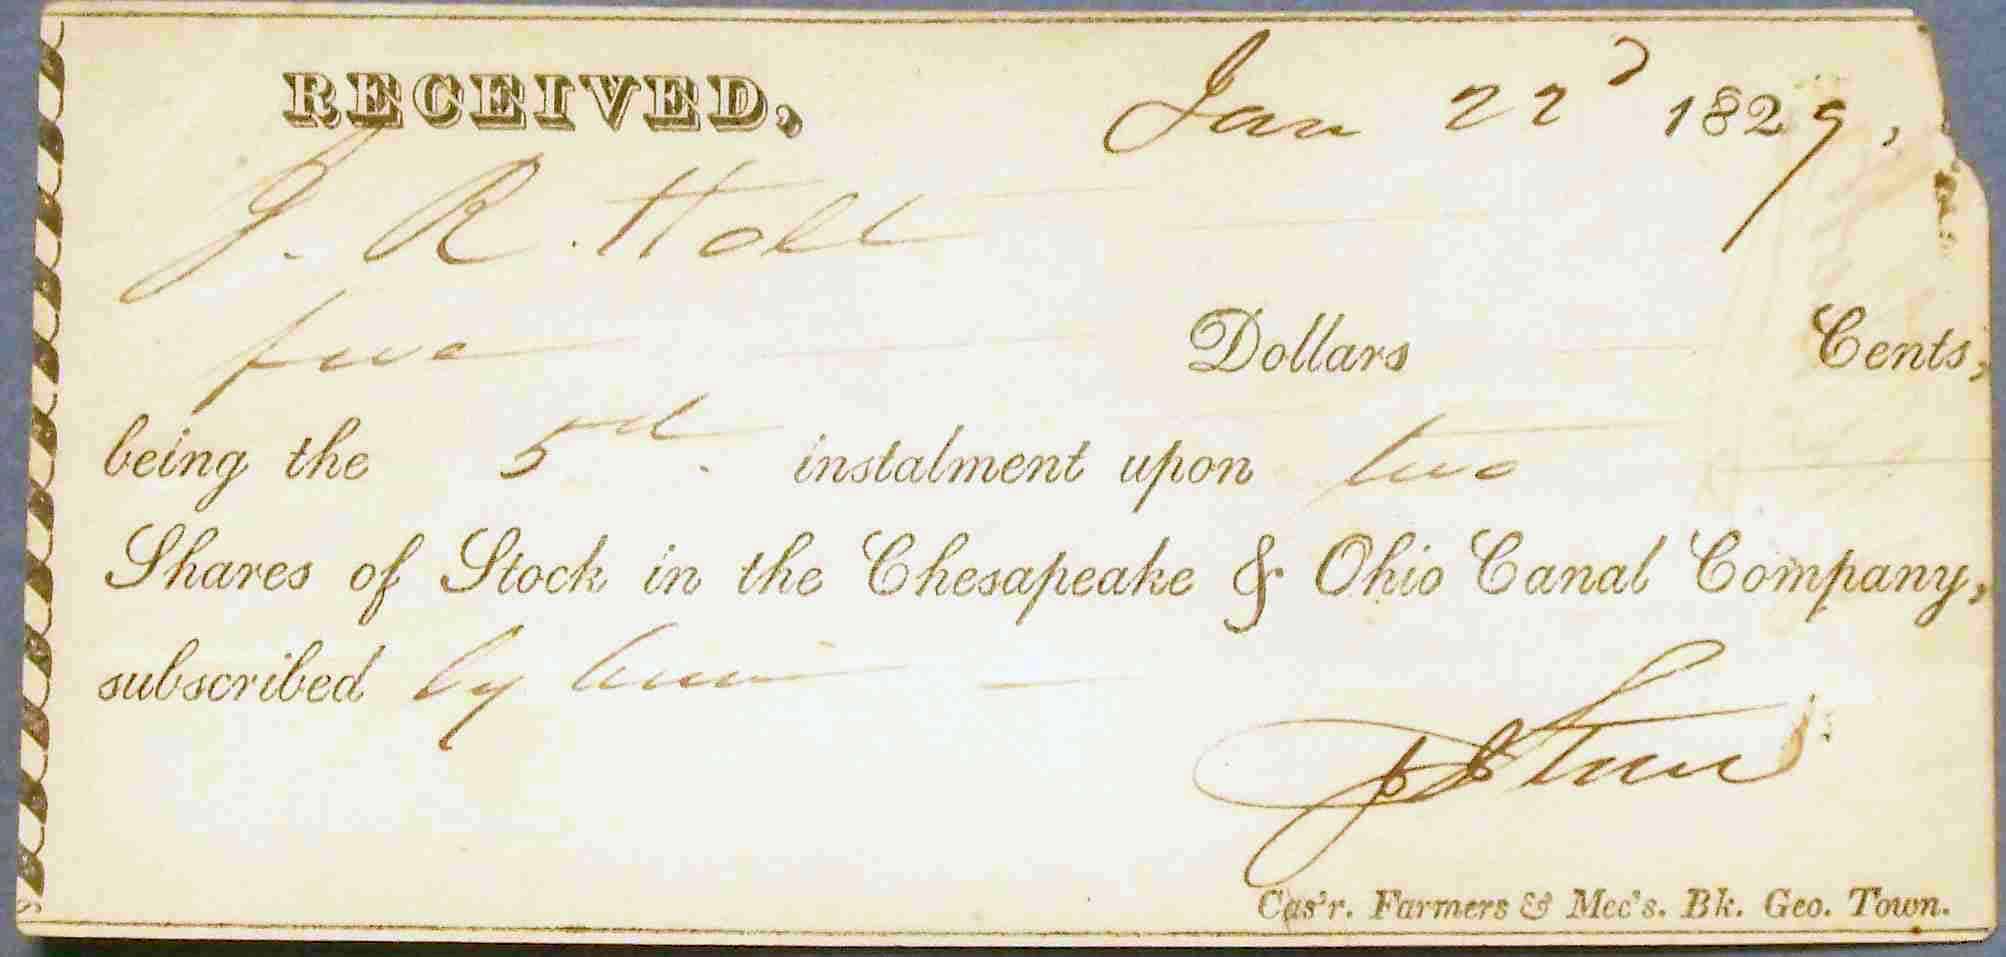 RECEIVED, Jan 22d 1829,
J. R. Holt
five Dollars Cents,
being the 5d. instalment upon two
Shares of Stock in the Chesapeake & Ohio Canal Company,
subscribed by him
Cas'r. Farmers & Mec's. Bk. Geo. Town.